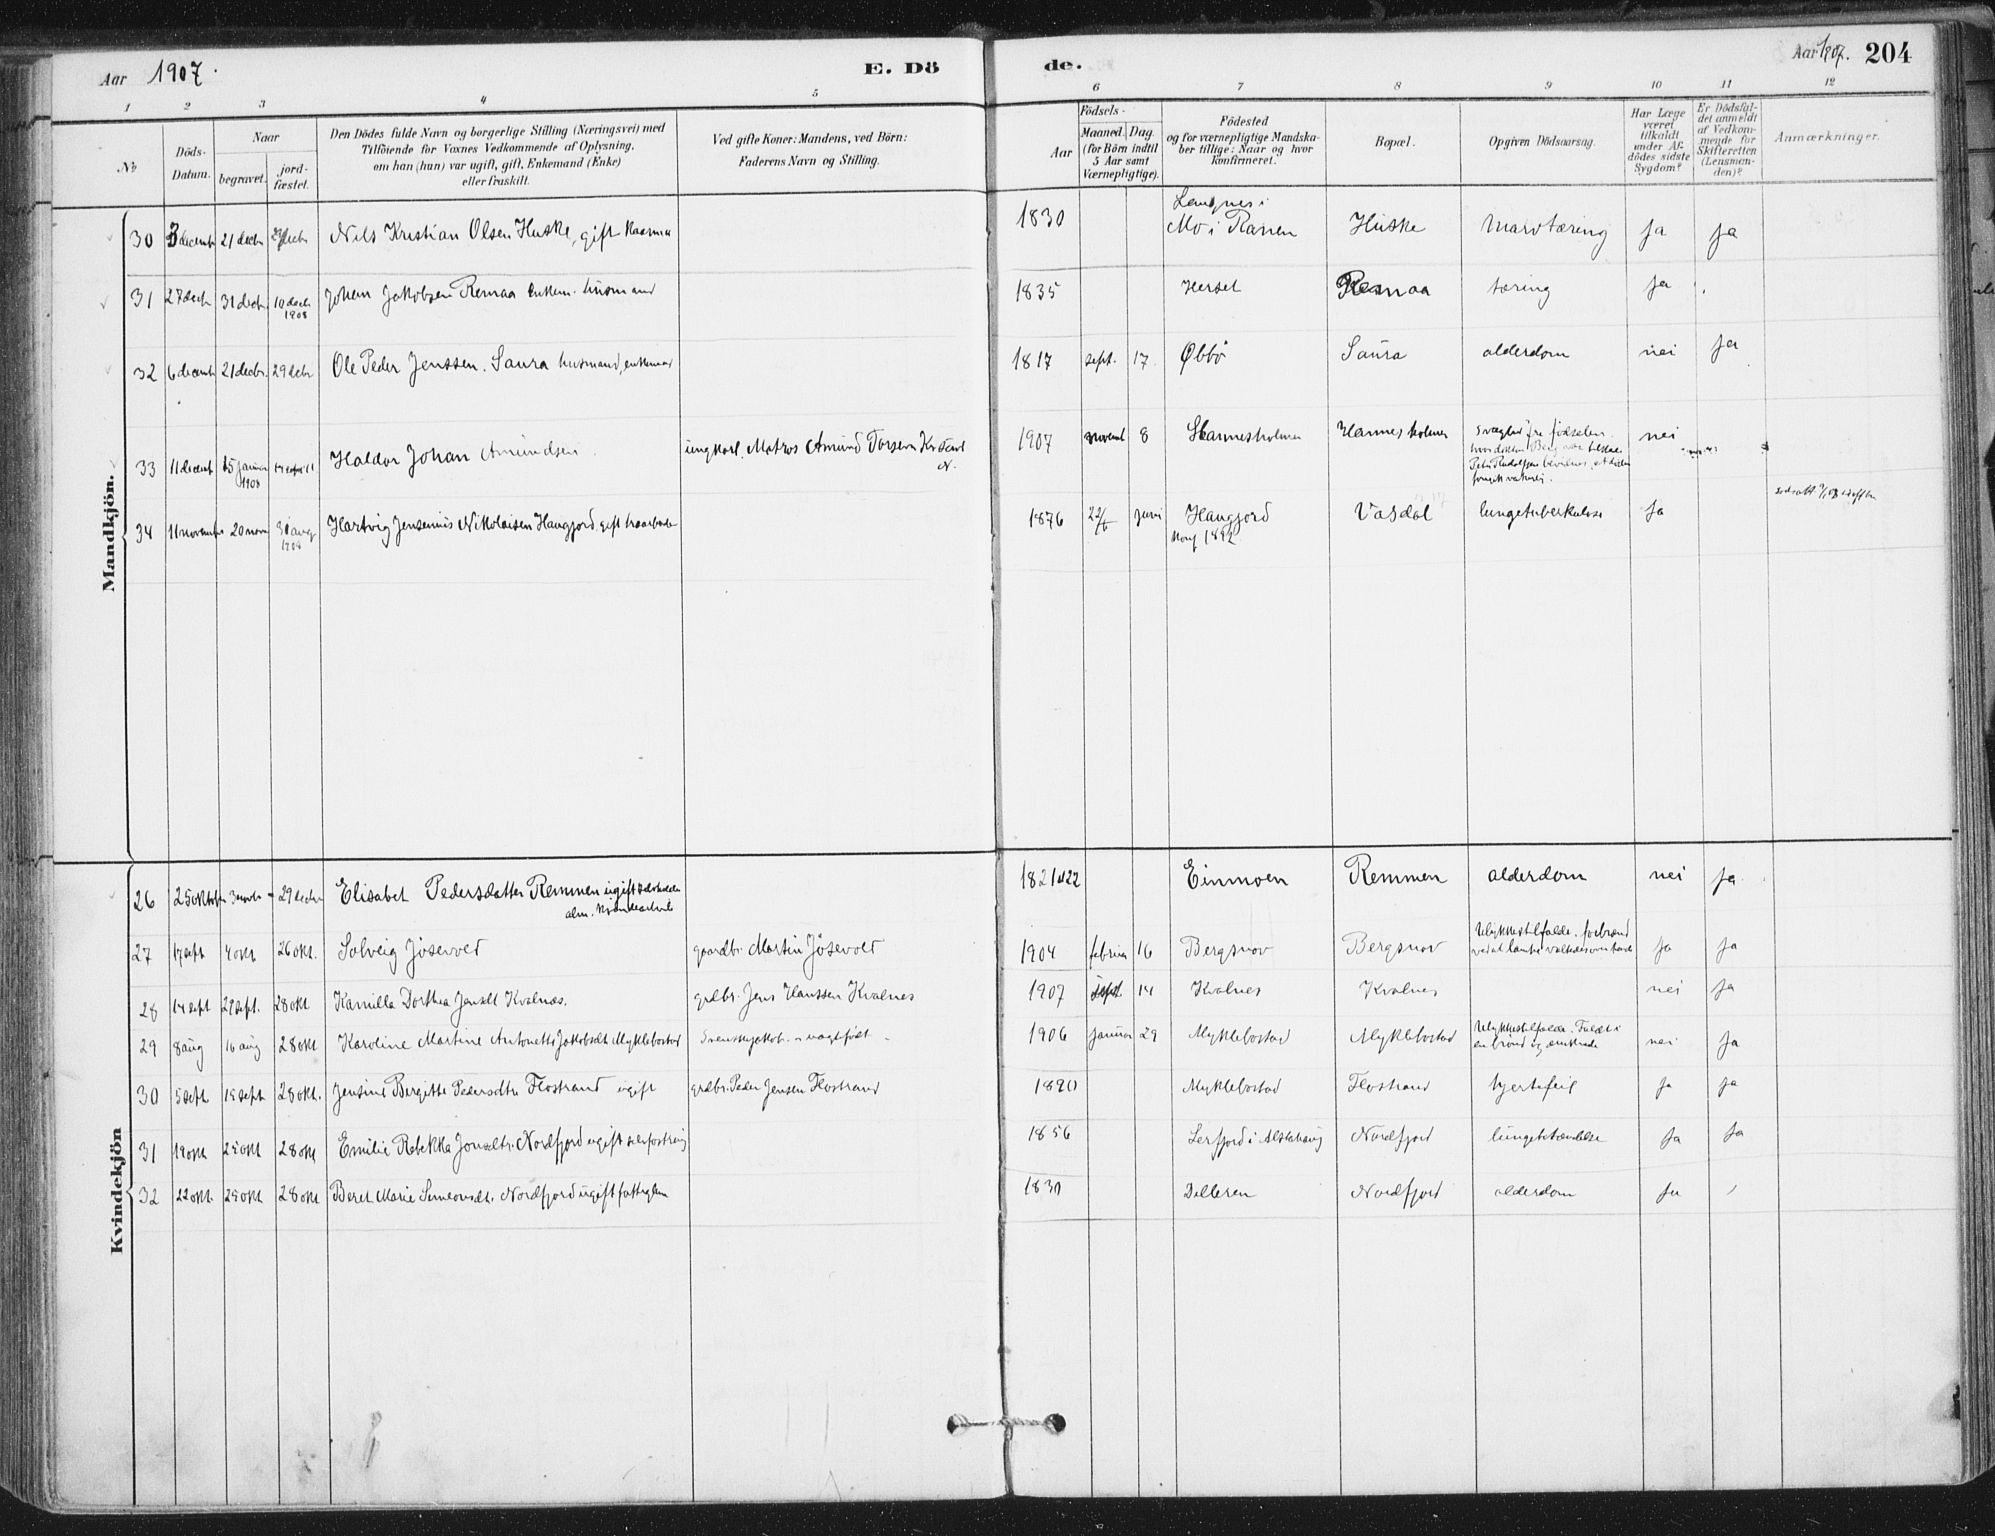 Aar 1907.
E. Dö
de.
Aar 1907. 204
1 2 3 4 5 6 7 8 9 10 11 12
No
Döds-
Datum.
Naar
begravet.
jord-
fæstet.
Den Dödes fulde Navn og borgerlige Stilling (Næringsvei) med
Tilföiende for Voxnes Vedkommende af Oplysning,
om han (hun) var ugift, gift, Enkemand (Enke)
eller fraskilt.
Ved gifte Koner: Mandens, ved Börn:
Faderens Navn og Stilling.
Födsels-
Aar
Maaned. Dag.
(for Börn indtil
5 Aar samt
Værnepligtige).
Födested
og for værnepligtige Mandska-
ber tillige: Naar og hvor
konfirmeret.
Bopæl.
Opgiven Dödsaarsag.
Har Læge
været
tilkaldt
under Af-
dödes sidste
Sygdom?
Er Dödsfal-
det anmeldt
af Vedkom-
mende for
Skifteretten
(Lensman-
den)?
Anmærkninger.
Mandkjön.
30 3 decemb 21 decbr Nils Kristian Olsen Huske, gift 1830 Mo i Ranen Huske marvtæring ja ja
31 27 decb 31 decbr 10 decb 1908 Johan Jakobsen Remaa enkem. husmand 1835 Herset Remaa tæring ja
32 6 decemb 21 decbr. 29 debr Ole Peder Jenssen. Saura husmand, enkemand 1817 sept. 17 Øbbø Saura alderdom nei ja
33 11 decemb 15 januar 1908 Haldor Johan Amundsen ungkarl. Matros Amund Torsen 1907 novemb 8 Hannesholmen Hannesholmen svaghed fra fødselen. nei
34 11 november 20 novbr 1908 Hartvig Jensenius Nikolaisen Haugjord, gift 1876 22/6 juni Haugjord Vasdal lungetuberkulose ja
konf 1892
Kvindekjön
26 25 oktober 3 novbr 29 decbr Elisabet Pedersdatter Remmen ugift 1821 a 22 Einmoen Remmen alderdom nei ja
27 17 sept 4 okt 26 okt. Solveig Jösevold gaardbr. Martin Jösevold 1904 februar 16 Bergsnov Bergsnov Ulykkestilfælde. forbrænd ja ja
28 14 sept 29 sept. 28 okt Kamilla Dorthea Jensdt Kvalnæs. grdbr. Jens Hanssen Kvalnes 1907 sept. 14 Kvalnes Kvalnes nei ja
29 8 aug 16 aug 28 okt Karoline Martine Antonette Jakobsdt Myklebostad 1906 januar 29 Myklebostad Myklebostad Ulykkestilfælde. Faldt i nei ja
en brønd og
30 5 sept 15 sept 28 okt. Jensine Bergitte Pedersdtr Flostrand ugift grdbr. Peder Jensen Flostrand 1890 Myklebostad Flostrand hjertefeil ja ja
31 19 okt 25 okt 28 okt Emilie Rebekka Jonsdtr. Nordfjord ugift selvforsørg 1856 Leirfjord i Alstahaug Nordfjord lungebetændelse ja ja
32 22 okt. 25 okt 28 okt Beret Marie Simeonsdt. Nordfjord ugift fattiglem 1830 Nordfjord alderdom ja